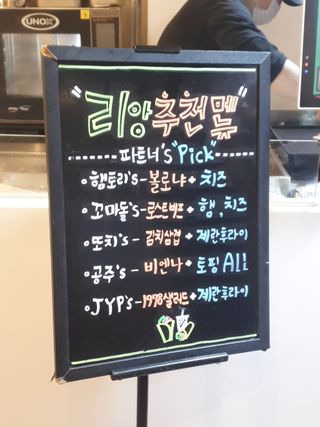 UNOX
"리앙추천멜"
파트너's "Pick"
햄토리's - 볼로냐 + 치즈
꼬마돌's - 로스트비프 + 햄, 치즈
또치's - 김치삼겹 + 계란후라이
공주's - 비엔나 + 토핑 All
JYP's - 1998샐러드 + 계란후라이